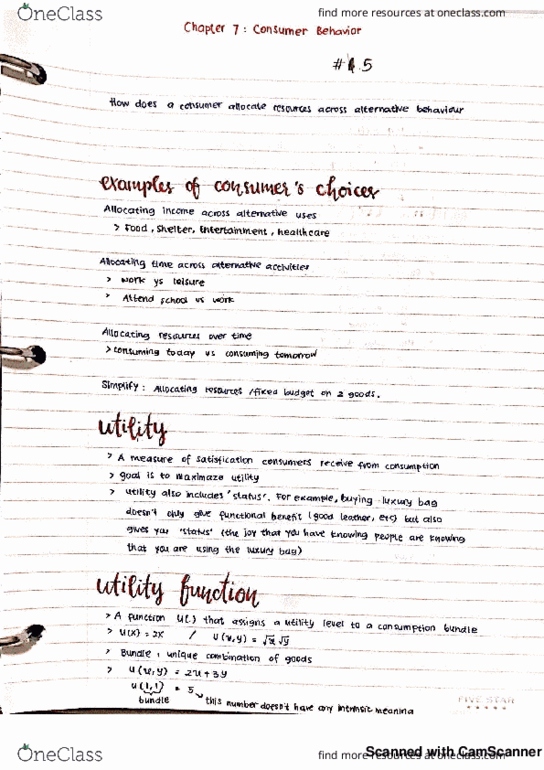 OneClass
find more resources at oneclass.com
Chapter 7 : Consumer Behavior
# 1.5
How does a consumer allocate resources across alternative behaviour
examples of consumer's choices
Allocating income across alternative uses
> Food, Shelter, Entertainment, healthcare
Allocating time across alternative activities
> work vs leisure
> Attend school vs work
Allocating resources over time
> consuming today vs consuming tomorrow
Simplify : Allocating resources /fixed budget on 2 goods.
utility
> A measure of satisfication consumers receive from consumption
> goal is to maximaze utility
> utility also includes 'status'. For example, buying luxury bag
doesn't only give functional benefit (good leather, etc) but also
gives you 'status' (the joy that you have knowing people are knowing
that you are using the luxury bag)
utility function
> A function U(.) that assigns a utility level to a consumption bundle
> U(x) = 2x / U(x,y) = √x √y
> Bundle : unique combination of goods
> U(x,y) = 2x + 3y
U(1,1) = 5 this number doesn't have any intrinsic meaning
bundle
FIVE STAR
OneClass
find more resources at oneclass.com
Scanned with CamScanner